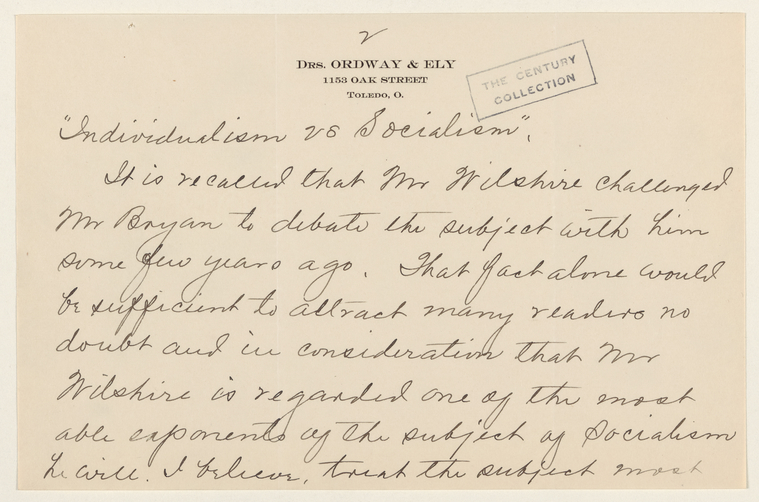 2
Drs. ORDWAY & ELY
1153 OAK STREET
Toledo, O.
THE CENTURY
COLLECTION
"Individualism vs Socialism".
It is recalled that Mr Wilshire challenged
Mr Bryan to debate the subject with him
some few years ago. That fact alone would
be sufficient to attract many readers no
doubt and in consideration that Mr
Wilshire is regarded one of the most
able exponents of the subject of Socialism
he will, I believe, treat the subject most